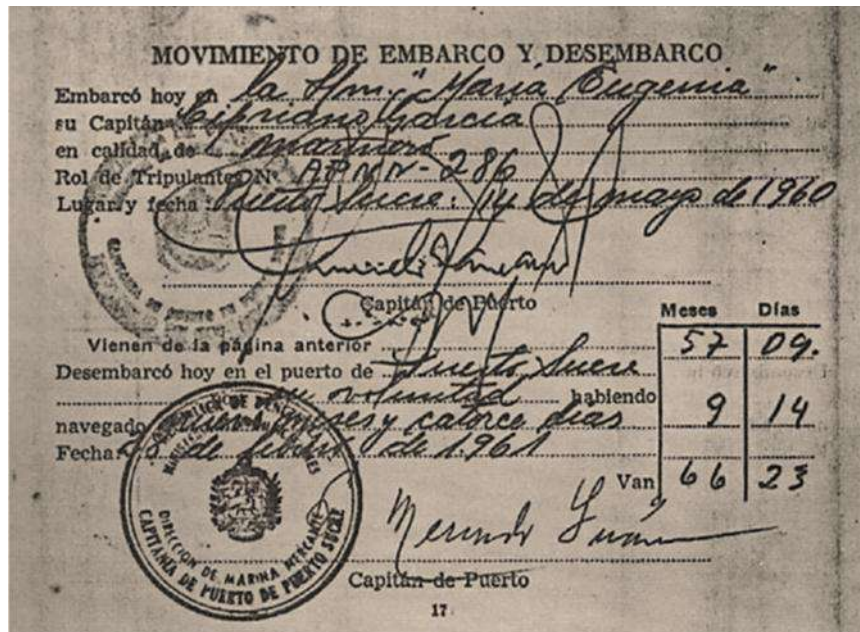 MOVIMIENTO DE EMBARCO Y DESEMBARCO
Embarcó hoy en la "Maria Eugenia"
su Capitán Cipriano Garcia
en calidad de marinero
Rol de Tripulantes Nº APNN-286
Lugar y fecha: Puerto Sucre: 14 de mayo de 1960
Capitán de Puerto
Meses Días
Vienen de la página anterior 57 09.
Desembarcó hoy en el puerto de Puerto Sucre
su voluntad habiendo
navegado nueve meses y catorce dias 9 14
Fecha: 28 de febrero de 1961
Van 66 23
Capitán de Puerto
DIRECCION DE MARINA MERCANTE
CAPITANIA DE PUERTO DE PUERTO SUCRE
17